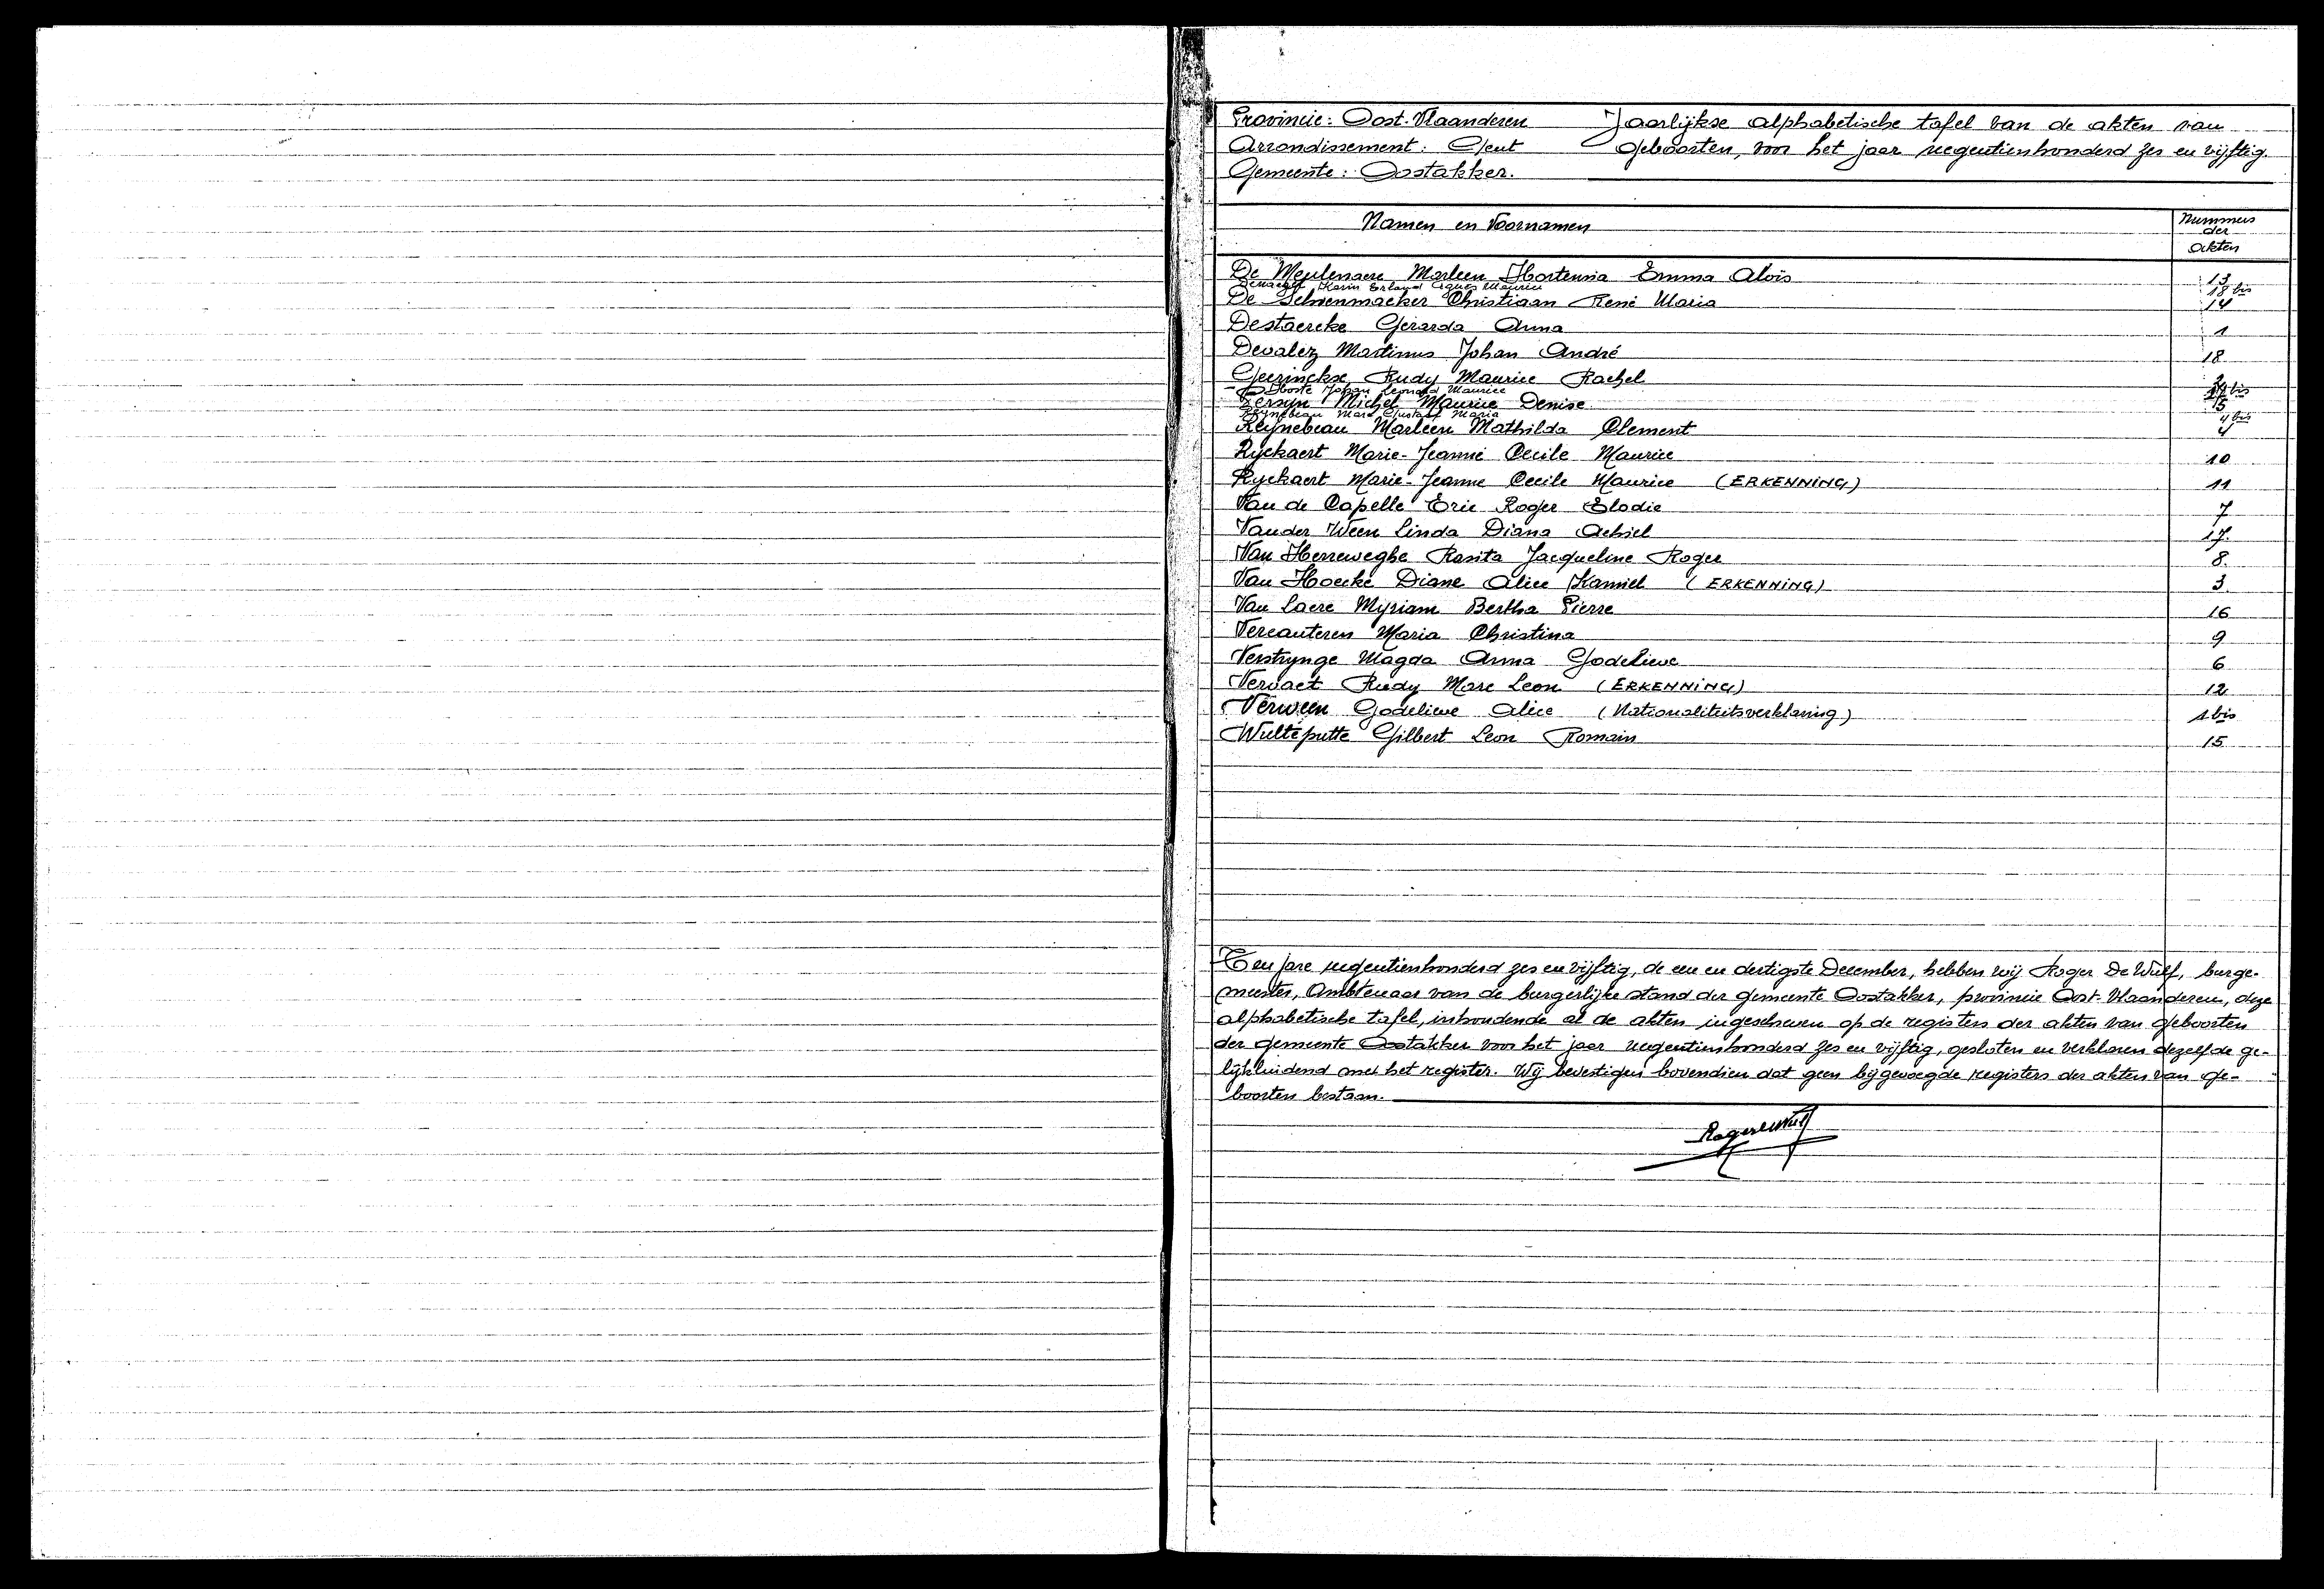 Provincie: Oost-Vlaanderen
Arrondissement: Gent
Gemeente: Oostakker.
Jaarlijkse alphabetische tafel van de akten van
geboorten, voor het jaar negentienhonderd zes en vijftig.
Namen en Voornamen Nummers der akten
De Meulenaere Marleen Hortensia Emma Aloïs 13
Karin Erland Agnes Maurice 18 bis
De Schoenmaeker Christiaan René Maria 14
Destaercke Gerarda Anna 1
Devalez Martinus Johan André 18
Geerinckx Rudy Maurice Rachel 2
Johan Leonard Maurice bis
Zersyn Michel Maurice Denise 5
Reijnebeau Marc Gustaaf Maria 4 bis
Reijnebeau Marleen Mathilda Clement 4
Ryckaert Marie-Jeanne Cecile Maurice 10
Ryckaert Marie-Jeanne Cecile Maurice (ERKENNING) 11
Van de Capelle Eric Roger Elodie 7
Vander Ween Linda Diana Achiel 17
Van Herreweghe Rosita Jacqueline Roger 8
Van Hoecke Diane Alice Kamiel (ERKENNING) 3
Van Laere Myriam Bertha Pierre 16
Vercauteren Maria Christina 9
Verstrynge Magda Anna Godelieve 6
Vervaet Rudy Marc Leon (ERKENNING) 12
Verween Godelieve Alice (Nationaliteitsverklaring) 1 bis
Wulteputte Gilbert Leon Romain 15
Ten jare negentienhonderd zes en vijftig, de een en dertigste December, hebben wij Roger De Wulf, burge-
meester, Ambtenaar van de burgerlijke stand der gemeente Oostakker, provincie Oost-Vlaanderen, deze
alphabetische tafel, inhoudende al de akten ingeschreven op de registers der akten van geboorten
der gemeente Oostakker voor het jaar negentienhonderd zes en vijftig, gesloten en verklaren dezelfde ge-
lijkluidend met het register. Wij bevestigen bovendien dat geen bijgevoegde registers der akten van ge-
boorten bestaan.